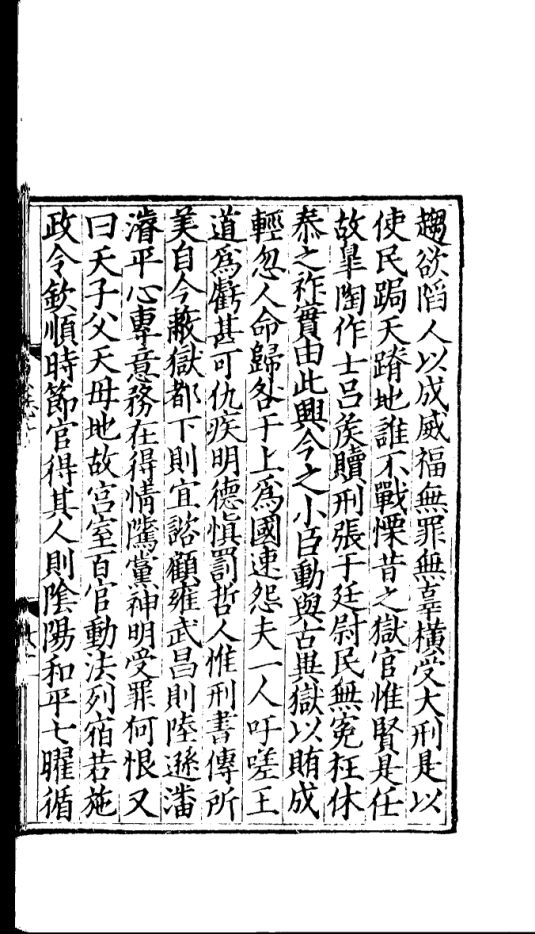 趨欲䧟人以成威福無罪無辜橫受大刑是以
使民跼天蹐地誰不戰慄昔之獄官惟賢是任
故臯陶作士吕侯贖刑張于廷尉民無冤枉休
泰之祚實由此興今之小臣動與古異獄以賄成
輕忽人命歸咎于上爲國速怨夫一人吁嗟王
道爲虧甚可仇疾明德愼罰哲人惟刑書傳所
美自今蔽獄都下則宜諮顧雍武昌則陸遜潘
濬平心專意務在得情隲黨神明受罪何恨又
曰天子父天母地故宫室百官動法列宿若施
政令欽順時節官得其人則隂陽和平七曜循